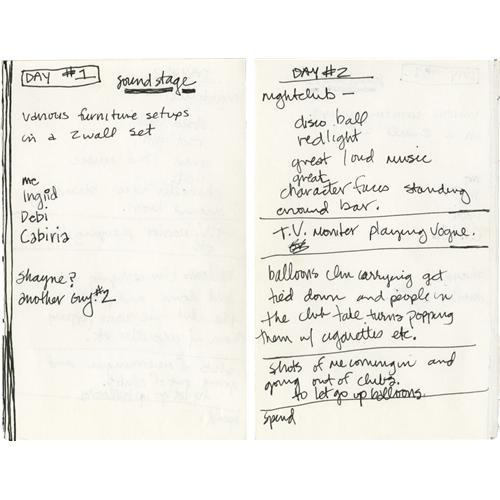 DAY #1
sound stage
various furniture setups
in a 2 wall set
me
Ingrid
Debi
Cabiria
Shayne?
another guy #2
DAY #2
nightclub —
disco ball
red light
great loud music
great
character faces standing
around bar.
T.V. moniter playing Vogue.
balloons I'm carrying get
tied down and people in
the club take turns popping
them w/ cigarettes etc.
shots of me coming in and
going out of clubs.
to let go up balloons.
spend